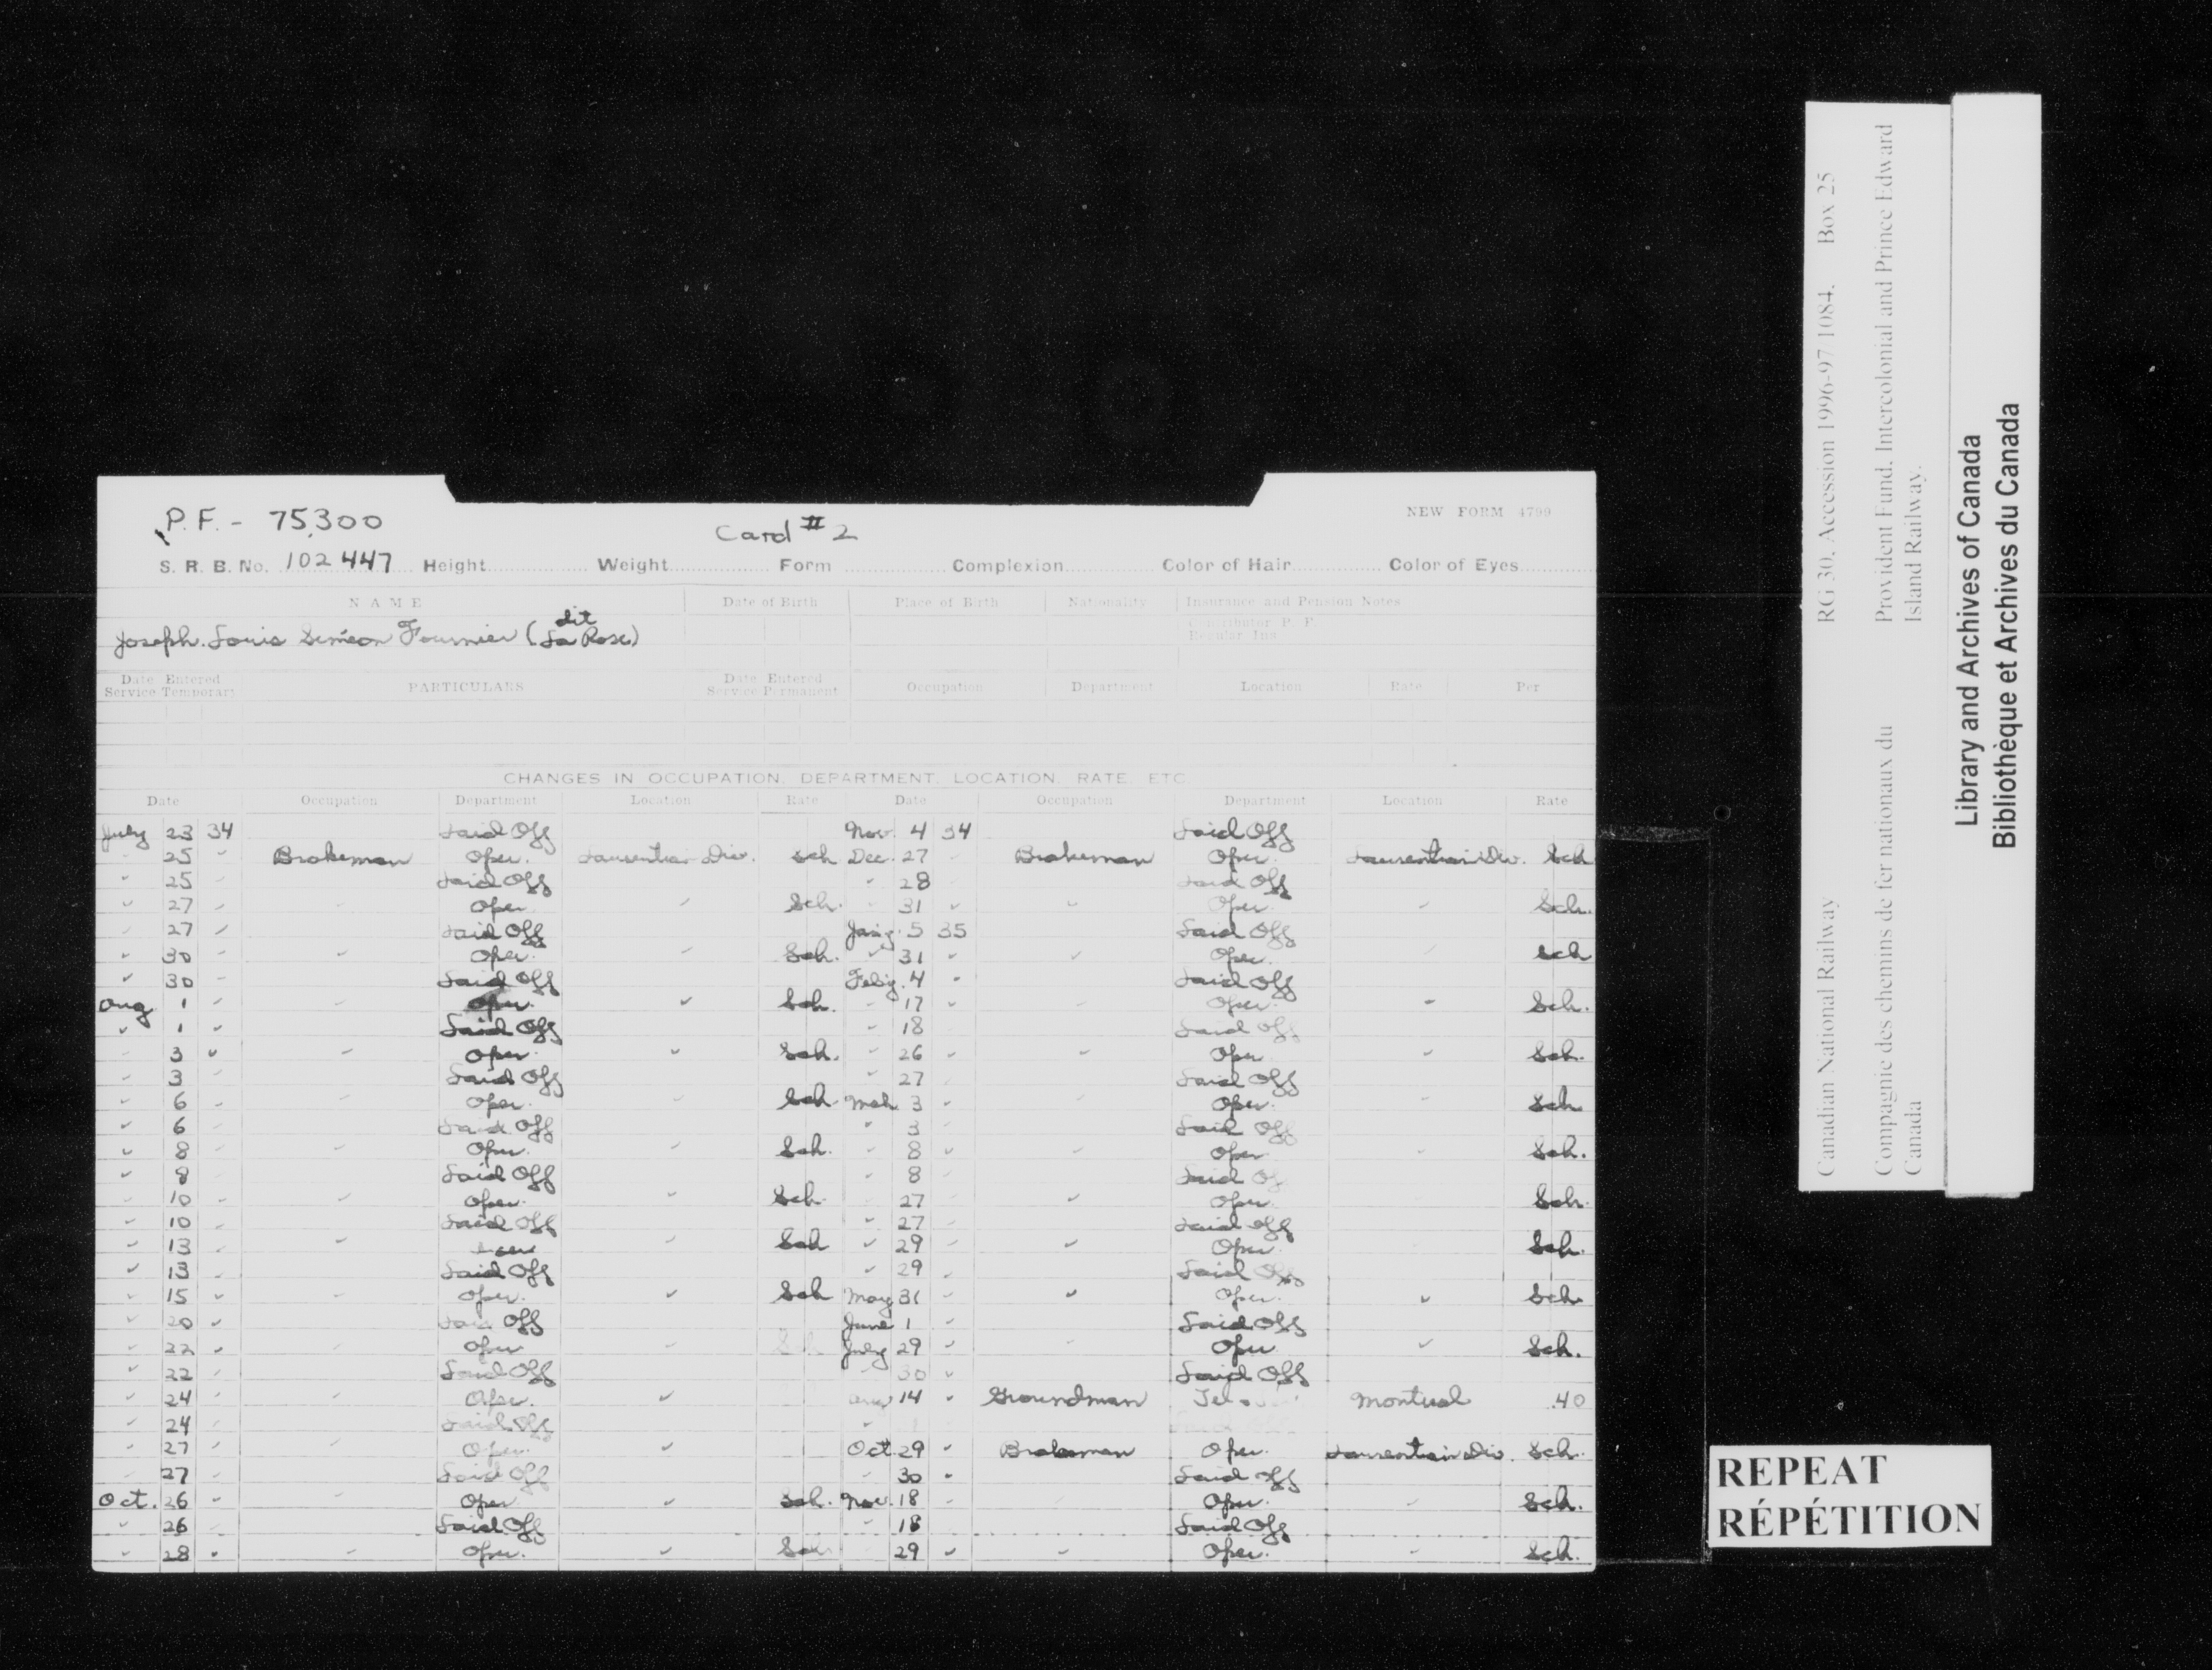 P.F. - 75,300
Card #2
NEW FORM 4799
S. R. B. No. 102447 Height Weight Form Complexion Color of Hair Color of Eyes
NAME Date of Birth Place of Birth Nationality Insurance and Pension Notes
Contributor P. F.
Regular Ins
dit
Joseph. Louis Siméon Fournier (La Rose)
Date Entered Service Temporary PARTICULARS Date Entered Service Permanent Occupation Department Location Rate Per
CHANGES IN OCCUPATION, DEPARTMENT, LOCATION, RATE ETC.
Date Occupation Department Location Rate Date Occupation Department Location Rate
July 23 34 Laid Off Nov. 4 34 Laid Off
" 25 " Brakeman Oper. Laurentian Div. Sch Dec. 27 " Brakeman Oper. Laurentian Div. Sch
" 25 " Laid Off " 28 Laid Off
" 27 " " Oper. " Sch. " 31 " " Oper. " Sch.
" 27 " Laid Off Jan'y. 5 35 Laid Off
" 30 " " Oper. " Sch. " 31 " " Oper. " Sch
" 30 " Laid Off Feb'y. 4 " Laid Off
Aug 1 " " Oper. " Sch. " 17 " " Oper. " Sch.
" 1 " Laid Off " 18 Laid Off
" 3 " " Oper. " Sch. " 26 " " Oper. " Sch.
" 3 Laid Off " 27 Laid Off
" 6 " " Oper. " Sch. Mch. 3 " " Oper. " Sch
" 6 " Laid Off " 3 " Laid Off
" 8 " " Oper. " Sch. " 8 " " Oper. " Sch.
" 8 " Laid Off " 8 " Laid Off
" 10 " " Oper. " Sch. " 27 " " Oper. Sch.
" 10 " Laid Off " 27 " Laid Off
" 13 " " Oper " Sch " 29 " " Oper. Sch.
" 13 " Laid Off " 29 " Laid Off
" 15 " " Oper. " Sch May 31 " " Oper. " Sch.
" 20 " Laid Off June 1 " Laid Off
" 22 " " Oper " Sch July 29 " " Oper " Sch.
" 22 " Laid Off 30 " Laid Off
" 24 " " Oper. " Aug 14 " Groundman Montreal .40
" 24 " Laid Off
" 27 " " Oper. " Oct 29 " Brakeman Oper. Laurentian Div. Sch.
" 27 " Laid Off " 30 " Laid Off
Oct. 26 " " Oper " Sch. Nov. 18 " Oper. " Sch.
" 26 " Laid Off " 18 Laid Off
" 28 " " Oper. " Sch " 29 " " Oper. " Sch.
Canadian National Railway RG 30, Accession 1996-97/1084. Box 25
Compagnie des chemins de fer nationaux du Canada
Provident Fund, Intercolonial and Prince Edward Island Railway.
Library and Archives of Canada
Bibliothèque et Archives du Canada
REPEAT
RÉPÉTITION